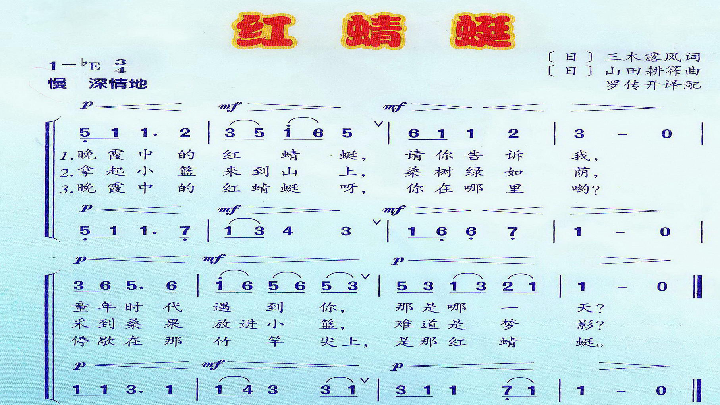 红蜻蜓
1=♭E 3/4
〔日〕三木露风词
慢 深情地
〔日〕山田耕筰曲
罗传开译配
p mf mf
5 1 1. 2 | 3 5 i 6 5 | 6 1 1 2 | 3 - 0 |
1.晚霞中的红蜻蜓, 请你告诉我,
2.拿起小篮来到山上, 桑树绿如荫,
3.晚霞中的红蜻蜓呀, 你在哪里哟?
p mf mf
5 1 1. 7 | 1 3 4 3 | 1 6 6 7 | 1 - 0 |
p mf p
3 6 5. 6 | i 6 5 6 5 3 | 5 3 1 3 2 1 | 1 - 0
童年时代遇到你, 那是哪一天?
采到桑果放进小篮, 难道是梦影?
停歇在那竹竿尖上, 是那红蜻蜓。
p mf p
1 1 3. 1 | 1 4 3 3 1 | 3 1 1 7 1 | 1 - 0